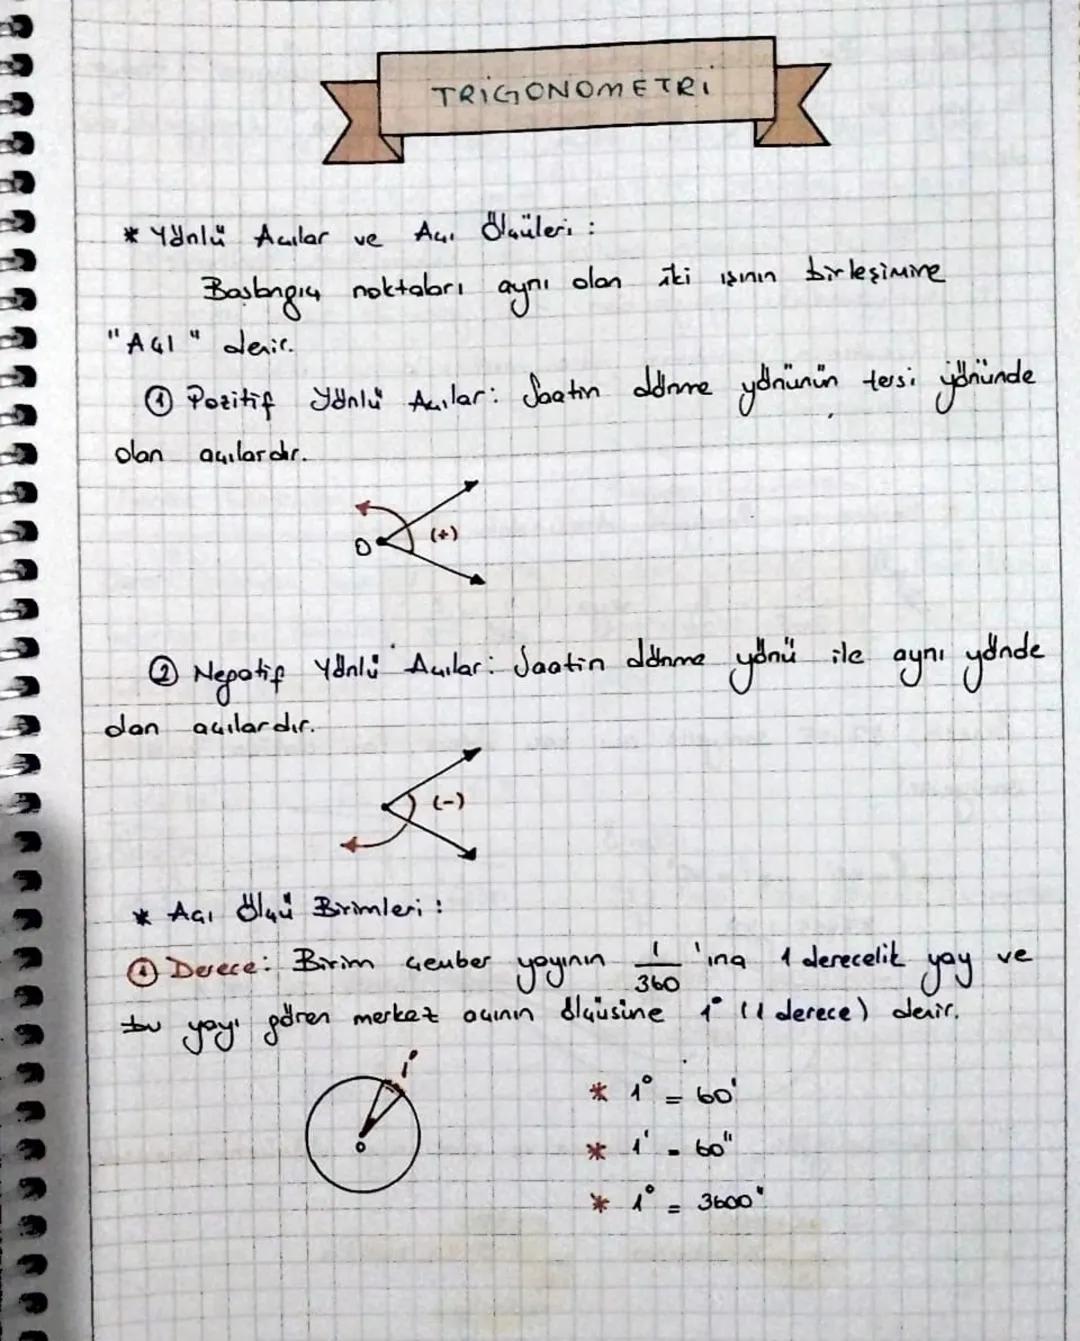 TRİGONOMETRİ
* Yönlü Açılar ve Açı Ölçüleri :
Başlangıç noktaları aynı olan iki ışının birleşimine
"Açı" denir.
① Pozitif Yönlü Açılar: Saatin dönme yönünün tersi yönünde
olan açılardır.
(+)
O
② Negatif Yönlü Açılar: Saatin dönme yönü ile aynı yönde
olan açılardır.
(-)
* Açı Ölçü Birimleri :
① Derece: Birim çember yayının 1/360 'ına 1 derecelik yay ve
bu yayı gören merkez açının ölçüsüne 1° (1 derece) denir.
1°
O
* 1° = 60'
* 1' = 60"
* 1° = 3600"